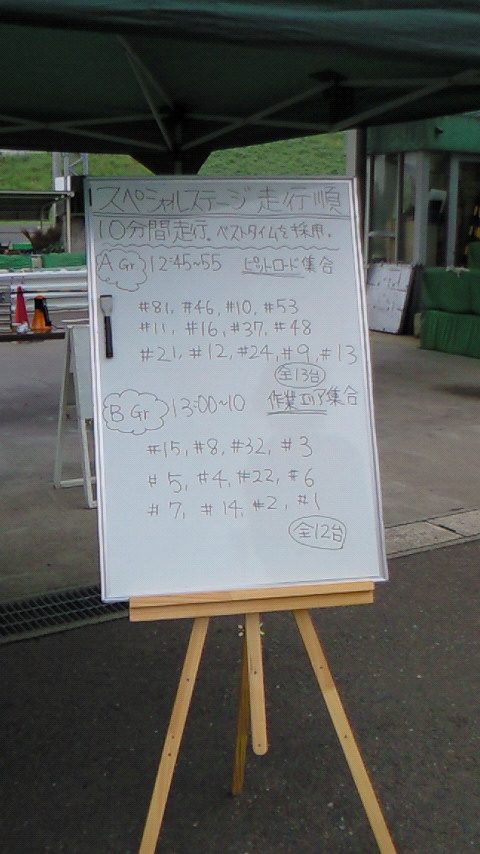 スペシャルステージ走行順
10分間走行。ベストタイムを採用。
A Gr 12:45~55 ピットロード集合
#81, #46, #10, #53
#11, #16, #37, #48
#21, #12, #24, #9, #13
全13台
B Gr 13:00~10 作業エリア集合
#15, #8, #32, #3
#5, #4, #22, #6
#7, #14, #2, #1
全12台